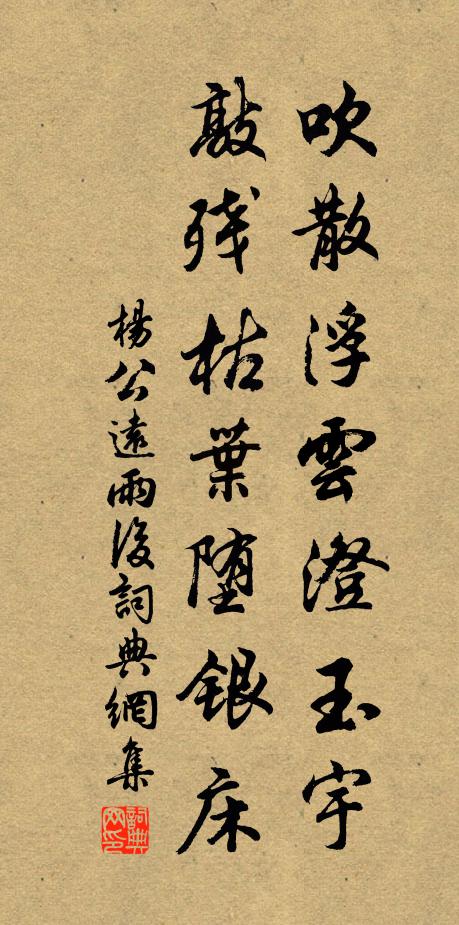 吹散浮雲澄玉宇
敲残枯葉堕銀床
楊公遠雨後詞典網集
詞典網印